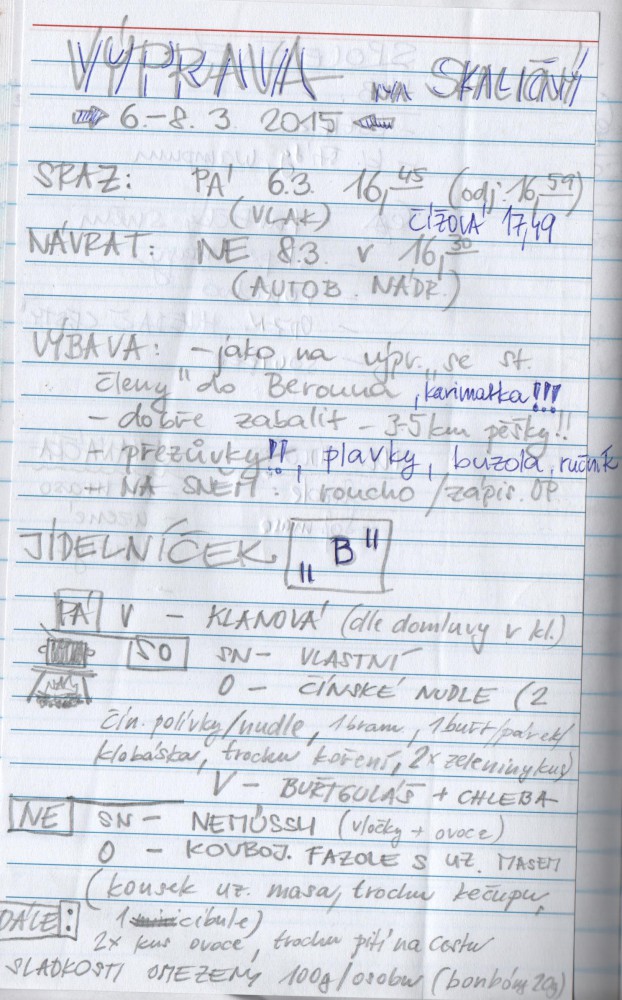 VÝPRAVA NA SKALIČNÝ
6.–8. 3. 2015
SRAZ: PÁ 6.3. 16,45 (odj. 16,59)
(VLAK) ČÍŽOVÁ 17,49
NÁVRAT: NE 8.3. v 16,30
(AUTOB. NÁDR.)
VÝBAVA: – jako na výpr. „se st.
členy" do Berouna, karimatka!!!
– dobře zabalit – 3-5km pěšky!!
+ přezůvky!!, plavky, buzola, ručník
+ NA SNĚM: roucho / zápis. OP
JÍDELNÍČEK „B"
PÁ V – KLANOVÁ (dle domluvy v kl.)
SO SN – VLASTNÍ
O – ČÍNSKÉ NUDLE (2
čín. polívky/nudle, 1 bram., 1 buřt/párek/
klobáska, trochu koření, 2x zeleniny kus)
V – BUŘTGULÁŠ + CHLEBA
NE SN – (vločky + ovoce)
O – KOVBOJ. FAZOLE S UZ. MASEM
(kousek uz. masa, trochu kečupu,
DÁLE: 1 cibule)
2x kus ovoce, trochu pití na cestu
SLADKOSTI OMEZENY 100g/osobu (bonbóny 20g)